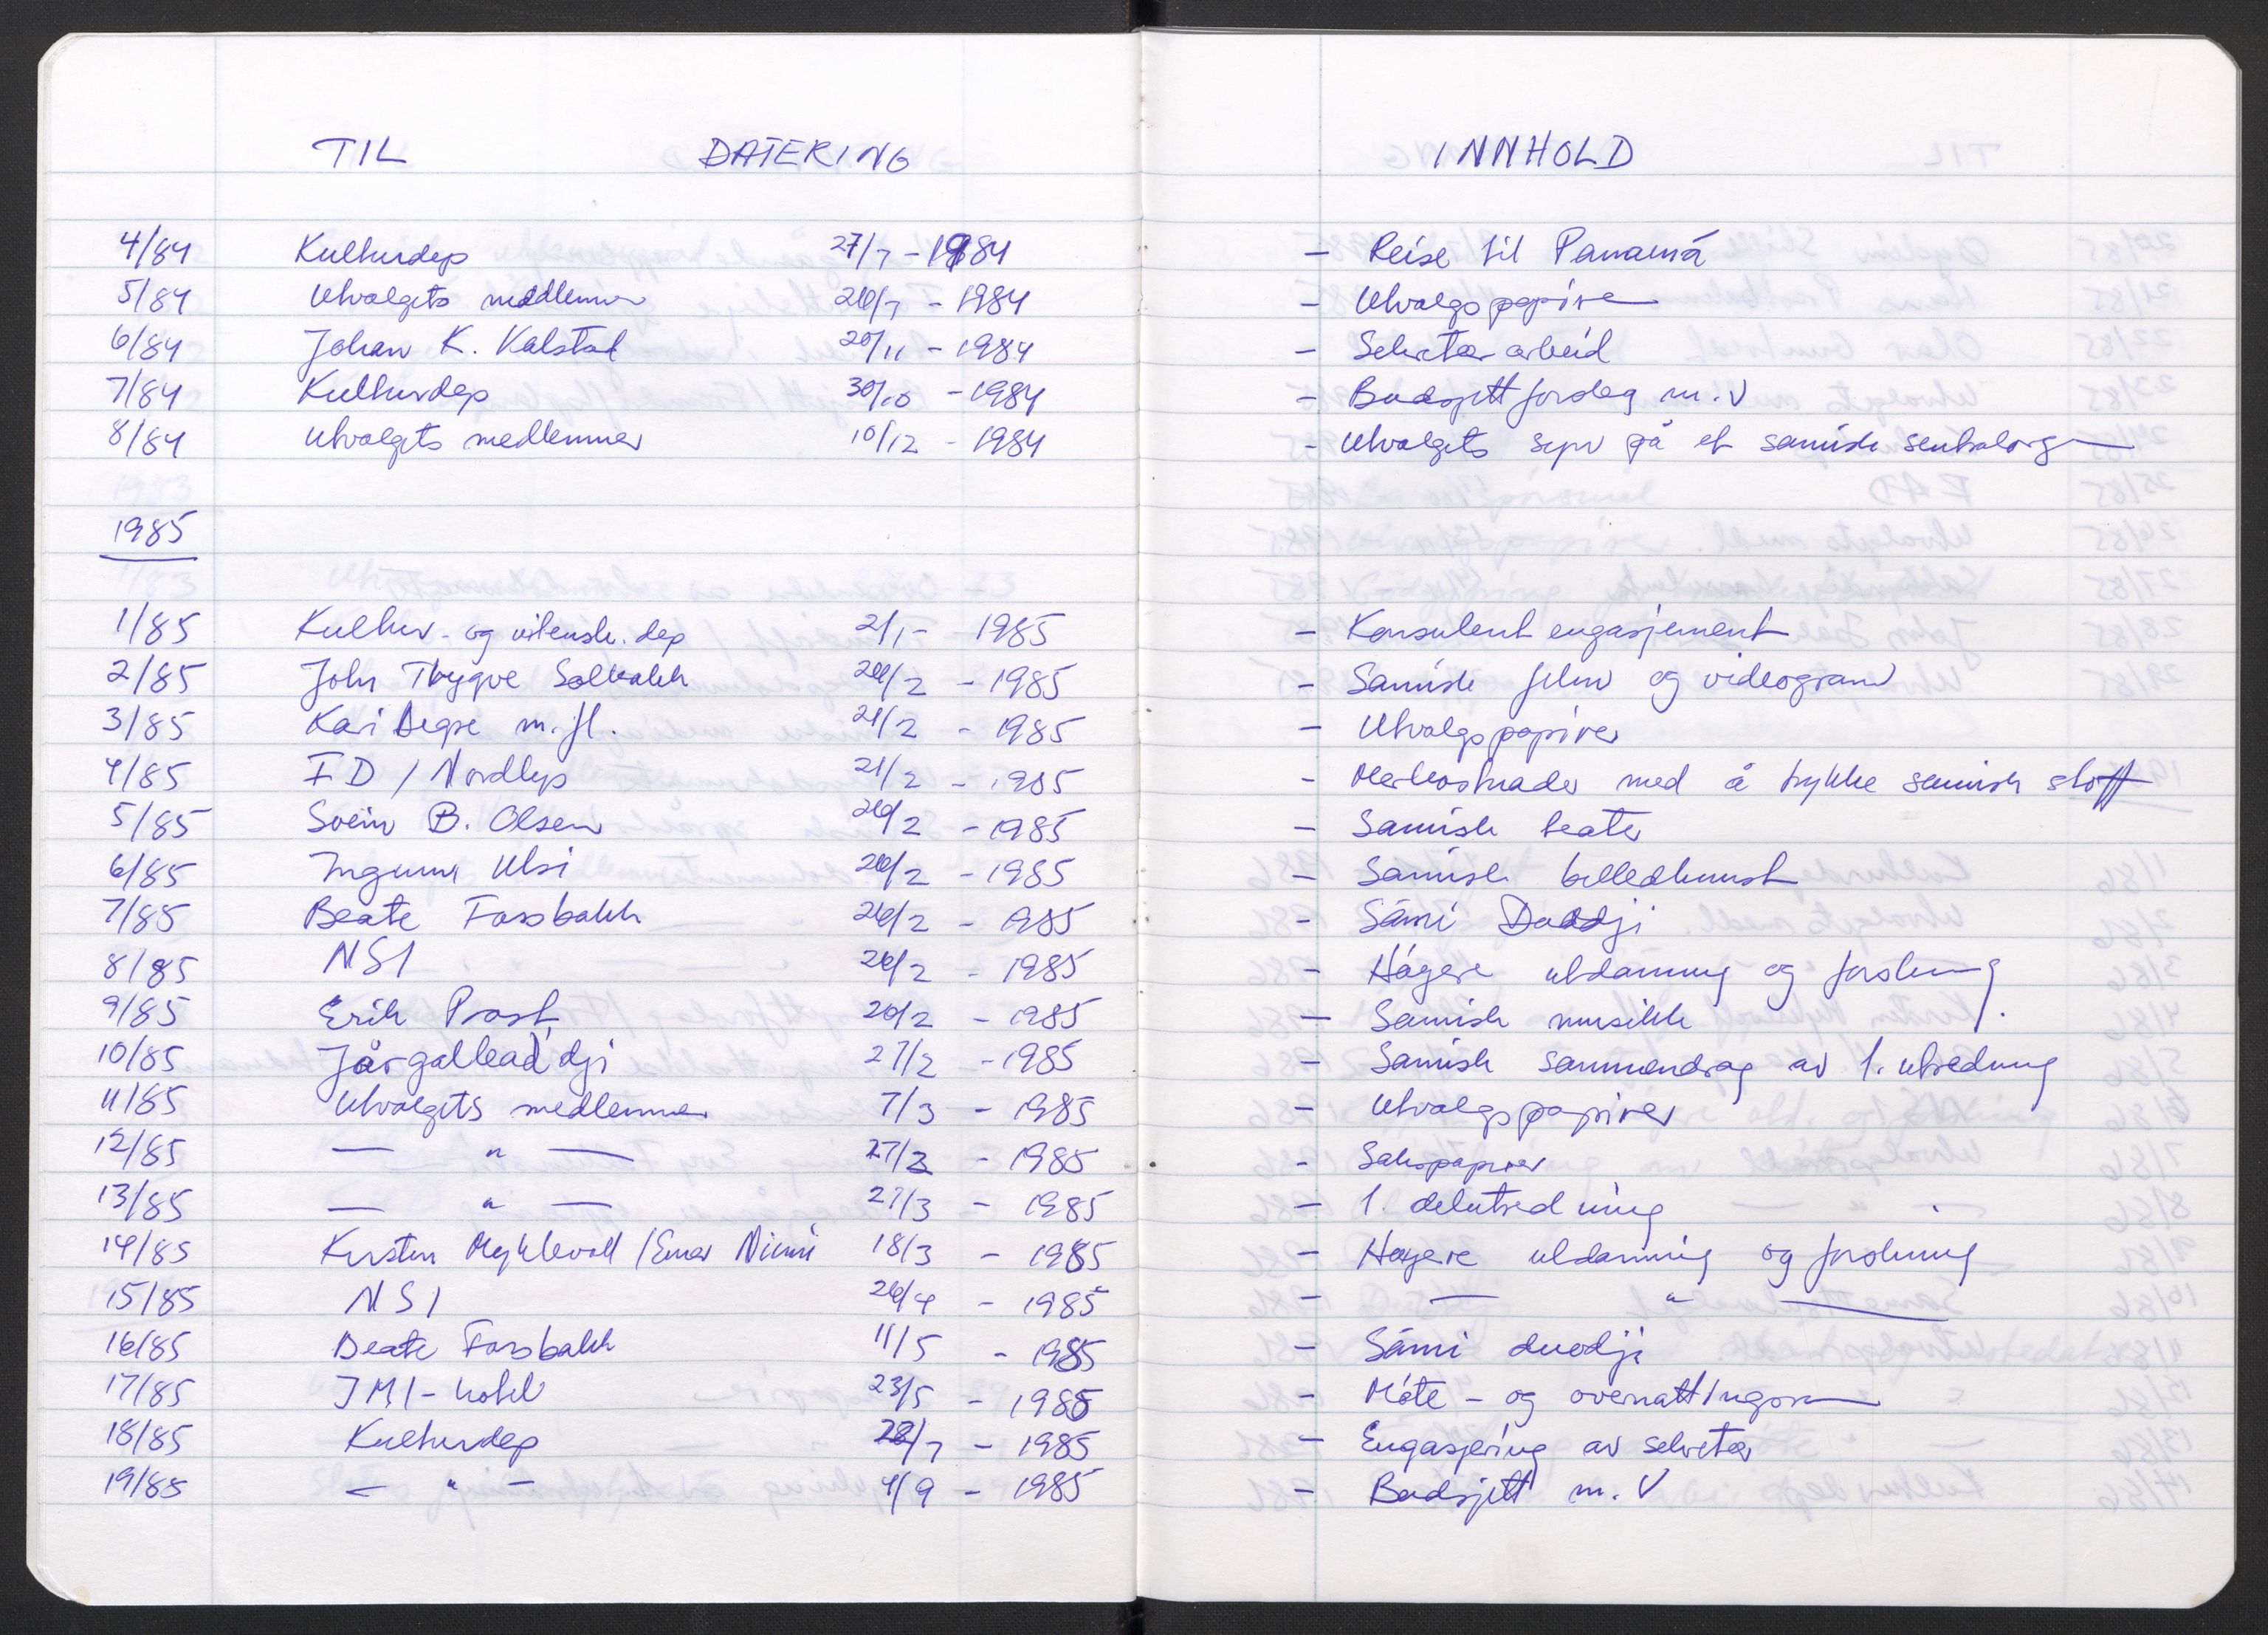 TIL DATERING INNHOLD
4/84 Kulturdep 27/7 - 1984 - Reise til Panamá
5/84 Utvalgets medlemmer 26/7 - 1984 - Utvalgspapirer
6/84 Johan K. Kalstad 20/11 - 1984 - Sekretærarbeid
7/84 Kulturdep 30/10 - 1984 - Budsjettforslag m.v
8/84 Utvalgets medlemmer 10/12 - 1984 - Utvalgets syn på et samisk sentralorgan
1985
1/85 Kultur- og vitensk. dep 2/1 - 1985 - Konsulentengasjement
2/85 John Trygve Solbakk /2 - 1985 - Samisk film og videogram
3/85 Kari m.fl. 21/2 - 1985 - Utvalgspapirer
4/85 FD / Nordlys 21/2 - 1985 - Merkostnader med å trykke samisk stoff
5/85 Svein B. Olsen 26/2 - 1985 - Samisk teater
6/85 Ingunn Utsi 26/2 - 1985 - Samisk billedkunst
7/85 Beate Fossbakk 26/2 - 1985 - Sámi Duddji
8/85 NSI 26/2 - 1985 - Høgere utdanning og forskning
9/85 Erik Prost 26/2 - 1985 - Samisk musikk
10/85 Jår'galléad'dji 27/2 - 1985 - Samisk sammendrag av 1. utredning
11/85 Utvalgets medlemmer 7/3 - 1985 - Utvalgspapirer
12/85 — " — 27/3 - 1985 - Sakspapirer
13/85 — " — 27/3 - 1985 - 1. delutredning
14/85 Kirsten Myklevoll / Einar Niemi 18/3 - 1985 - Høgere utdanning og forskning
15/85 NSI 26/4 - 1985 - — " —
16/85 Beate Fossbakk 11/5 - 1985 - Sámi duodji
17/85 IMI-hotel 23/5 - 1985 - Møte- og overnattingsrom
18/85 Kulturdep /7 - 1985 - Engasjering av sekretær
19/85 — " — 4/9 - 1985 - Budsjett m.v